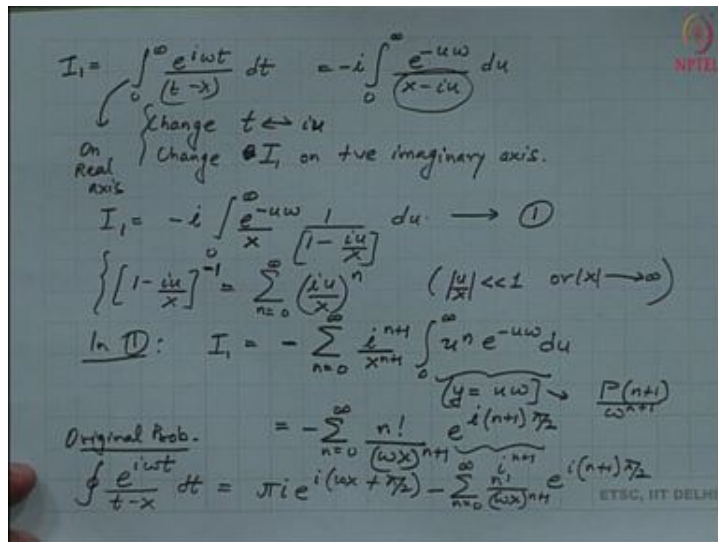 I₁ = ∫₀^∞ e^{iωt}/(t-x) dt = -i ∫₀^∞ e^{-uω}/(x-iu) du
NPTEL
On Real axis
Change t ↔ iu
Change I₁ on +ve imaginary axis.
I₁ = -i ∫₀^∞ e^{-uω}/x 1/[1 - iu/x] du. → ①
{[1 - iu/x]^{-1} = ∑_{n=0}^∞ (iu/x)^n (|u/x| << 1 or |x| → ∞)
In ①: I₁ = - ∑_{n=0}^∞ i^{n+1}/x^{n+1} ∫₀^∞ u^n e^{-uω} du
[y = uω] → Γ(n+1)/ω^{n+1}
= - ∑_{n=0}^∞ n!/(ωx)^{n+1} e^{i(n+1)π/2}
i^{n+1}
Original Prob.
∮ e^{iωt}/(t-x) dt = πi e^{i(ωx + π/2)} - ∑_{n=0}^∞ n!/(ωx)^{n+1} e^{i(n+1)π/2}
ETSC, IIT DELHI